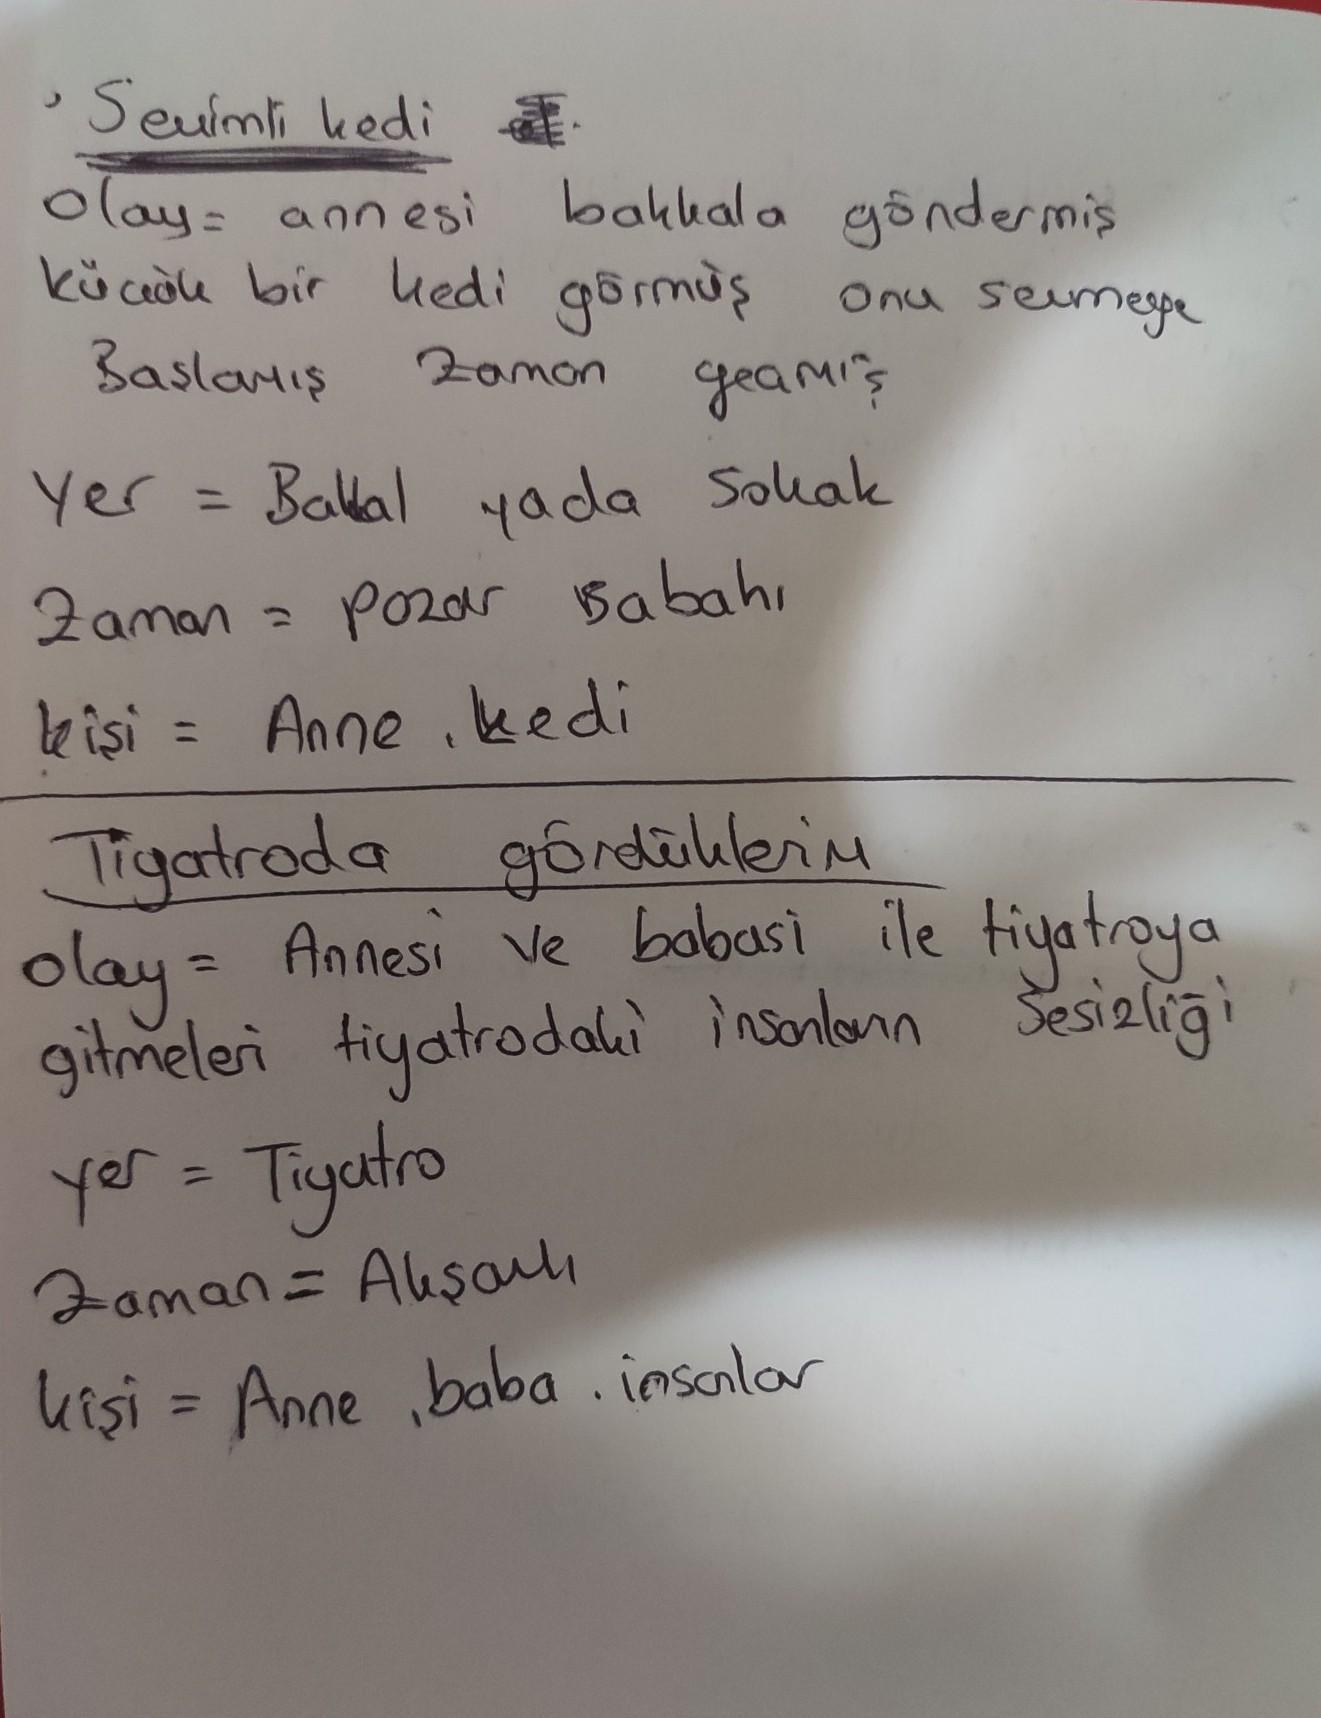 Sevimli kedi
olay= annesi bakkala göndermiş
küçük bir kedi görmüş onu sevmeye
Başlamış zaman geçmiş
Yer = Bakkal yada Sokak
Zaman = pazar sabahı
kişi = Anne, kedi
Tiyatroda gördüklerim
olay = Annesi ve babasi ile tiyatroya
gitmeleri tiyatrodaki insanların Sesizliği
yer = Tiyatro
Zaman = Akşamlı
kişi = Anne, baba. insanlar